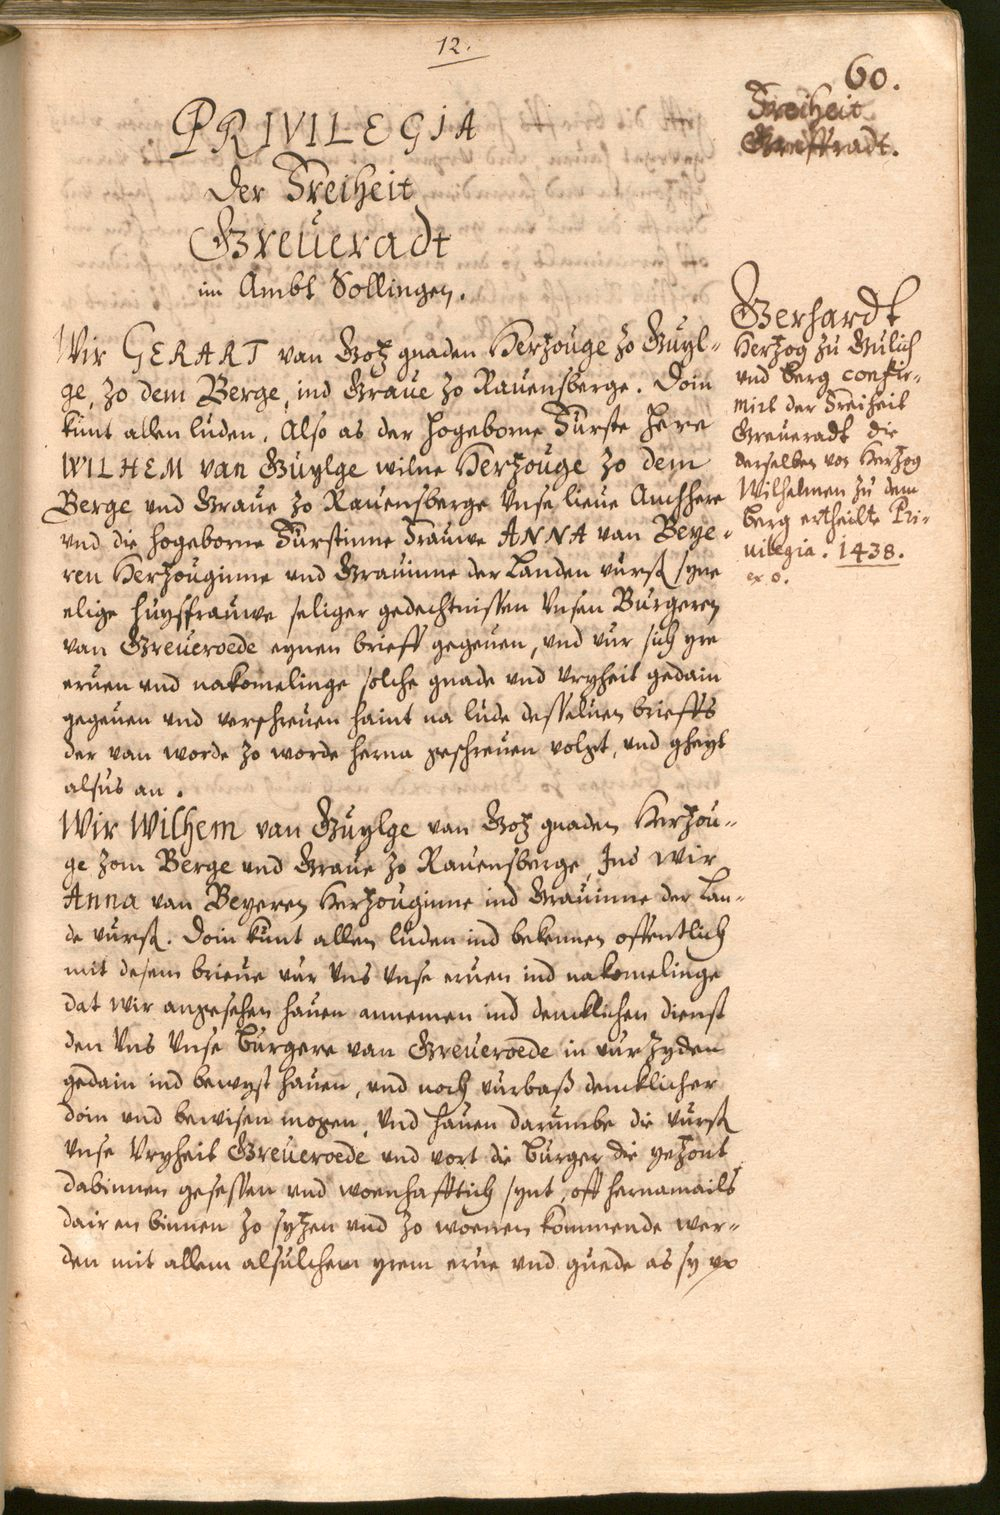 12.
60.
Freiheit
Greffradt.
PRIVILEGIA
der Freiheit
Greueradt
im Ambt Sollingen.
Gerhardt
Herzog zu Gülich
vnd berg confir-
mirt der Freiheit
Greueradt die
derselben von Herzog
Wilhelmen zu dem
berg ertheilte Pri-
uilegia. 1438.
Wir GERART van Gotz gnaden Hertzouge zo Guyl-
ge, zo dem Berge, ind Graue zo Rauensberge. Doin
kunt allen luden, Also as der hogeborne Furste Here
WILHEM van Guylge wilne Hertzouge zo dem
Berge vnd Graue zo Rauensberge vnse lieue Anchhere
vnd die hogeborne Furstinne Frauwe ANNA van Beye-
ren Hertzouginne vnd Grauinne der Landen vurß syne
elige huyffrauwe seliger gedechtnissen vnsen Burgeren
van Greueroede eynen brieff gegeuen, vnd vur sich yre
eruen vnd nakomelinge solche gnade vnd vryheit gedain
gegeuen vnd verschreuen haint na lude desseluen brieffs
der van worde zo worde herna geschreuen volgt, vnd gheyt
alsus an.
Wir Wilhem van Guylge van Gotz gnaden Hertzou-
ge zom Berge vnd Graue zo Rauensberge, Ind Wir
Anna van Beyeren Hertzouginne ind Grauinne der Lan-
de vurß. Doin kunt allen luden ind bekennen offentlich
mit desem brieue vur vns vnse eruen ind nakomelinge
dat wir angesehen hauen annemen ind dencklichen dienst
den vns vnse burgere van Greueroede in vurzyden
gedain ind bewyst hauen, vnd noch vurbaß dencklicher
doin vnd bewisen mogen, vnd hauen darumbe die vurß
vnse Vryheit Greueroede vnd vort die burger die yetzont
dabinnen gesessen vnd woenhafftich synt, off hernamails
dair en binnen zo sytzen vnd zo woenen kommende wer-
den mit allem alsulchem yrem erue vnd guede as sy yo